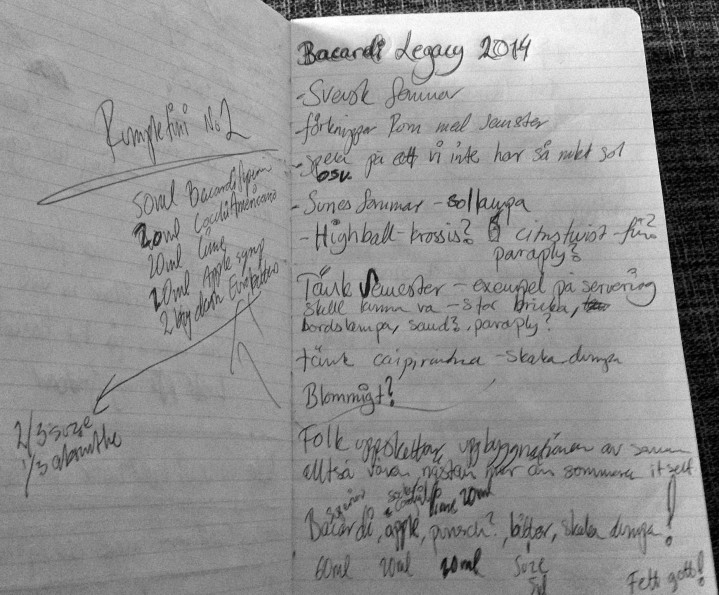 Rumpletini No 2
50ml Bacardi Superior
20ml Cocchi Americano
20ml lime
20ml Apple syrup
2 big dash
2/3 suze
1/3 absinthe
Bacardi Legacy 2014
- Svensk Sommar
- förknippar Rom med semester
- Spela på att vi inte har så mkt sol
osv.
- Sunes Sommar - sollampa
- Highball - krossis? citrustwist -
paraply?
Tänk Semester - exempel på servering
skulle kunna va - stor bricka,
bordslampa, sand?, paraply?
tänk caipirinha - skaka-dumpa
Blommigt?
Folk uppskattar uppbyggnationen av
alltså våren nästan mer än sommaren itself
lime 20ml
Bacardi, apple, punsch?, bitter, skaka dumpa!
60ml 20ml 20ml Suze
Fett gott!